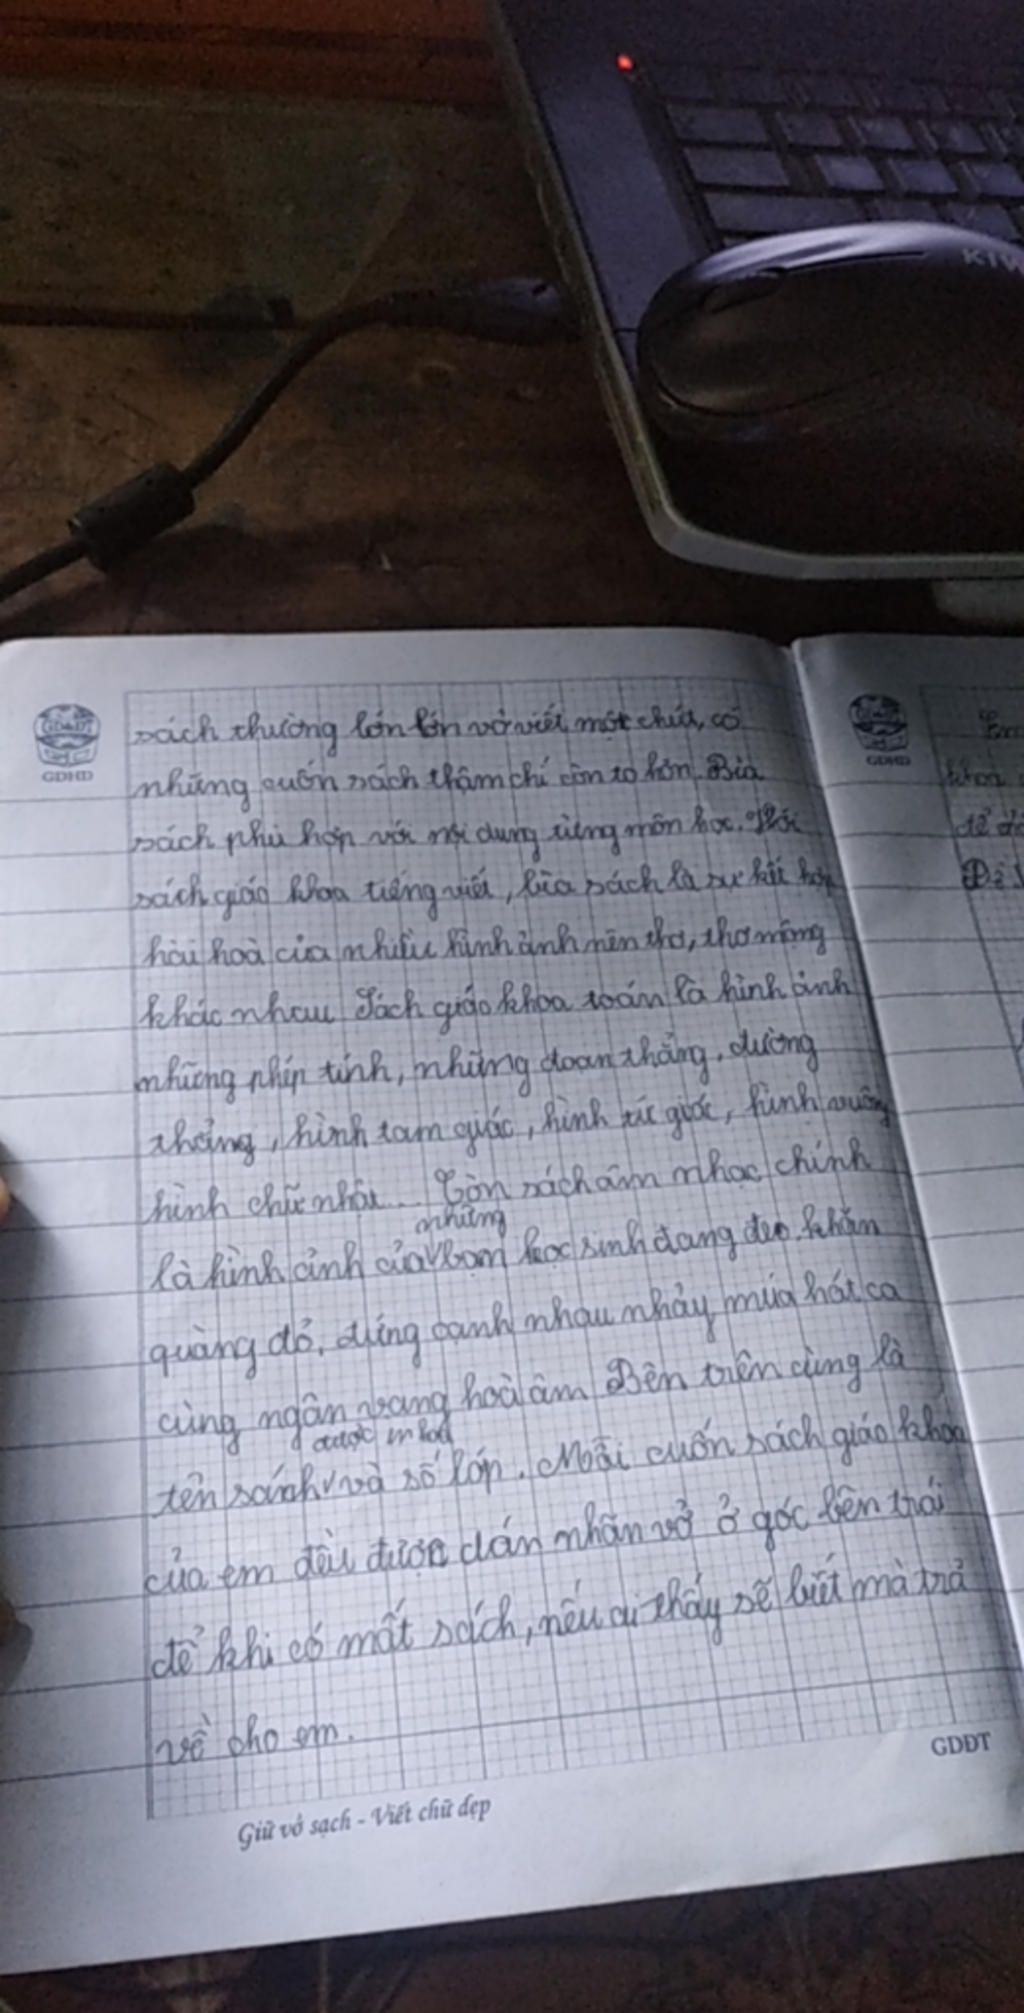 GDHD
sách thường lớn lớn vở viết một chút, có
những cuốn sách thậm chí còn to hơn. Bìa
sách phù hợp với nội dung từng môn học. Với
sách giáo khoa tiếng việt, bìa sách là sự kết hợp
hài hoà của nhiều hình ảnh nên thơ, thơ mộng
khác nhau Sách giáo khoa toán là hình ảnh
những phép tính, những đoạn thẳng, đường
thẳng, hình tam giác, hình tứ giác, hình vuông
hình chữ nhật... Còn sách âm nhạc chính
những
là hình ảnh của bạn học sinh đang đeo khăn
quàng đỏ, đứng cạnh nhau nhảy múa hát ca
cùng ngân vang hoà âm Bên trên cùng là
được in hoa
tên sánh và số lớp. Mỗi cuốn sách giáo khoa
của em đều được dán nhãn vở ở góc bên trái
để khi có mất sách, nếu ai thấy sẽ biết mà trả
về cho em.
Giữ vở sạch - Viết chữ đẹp
GDĐT
GDHD
Em
khoa
để
Đề